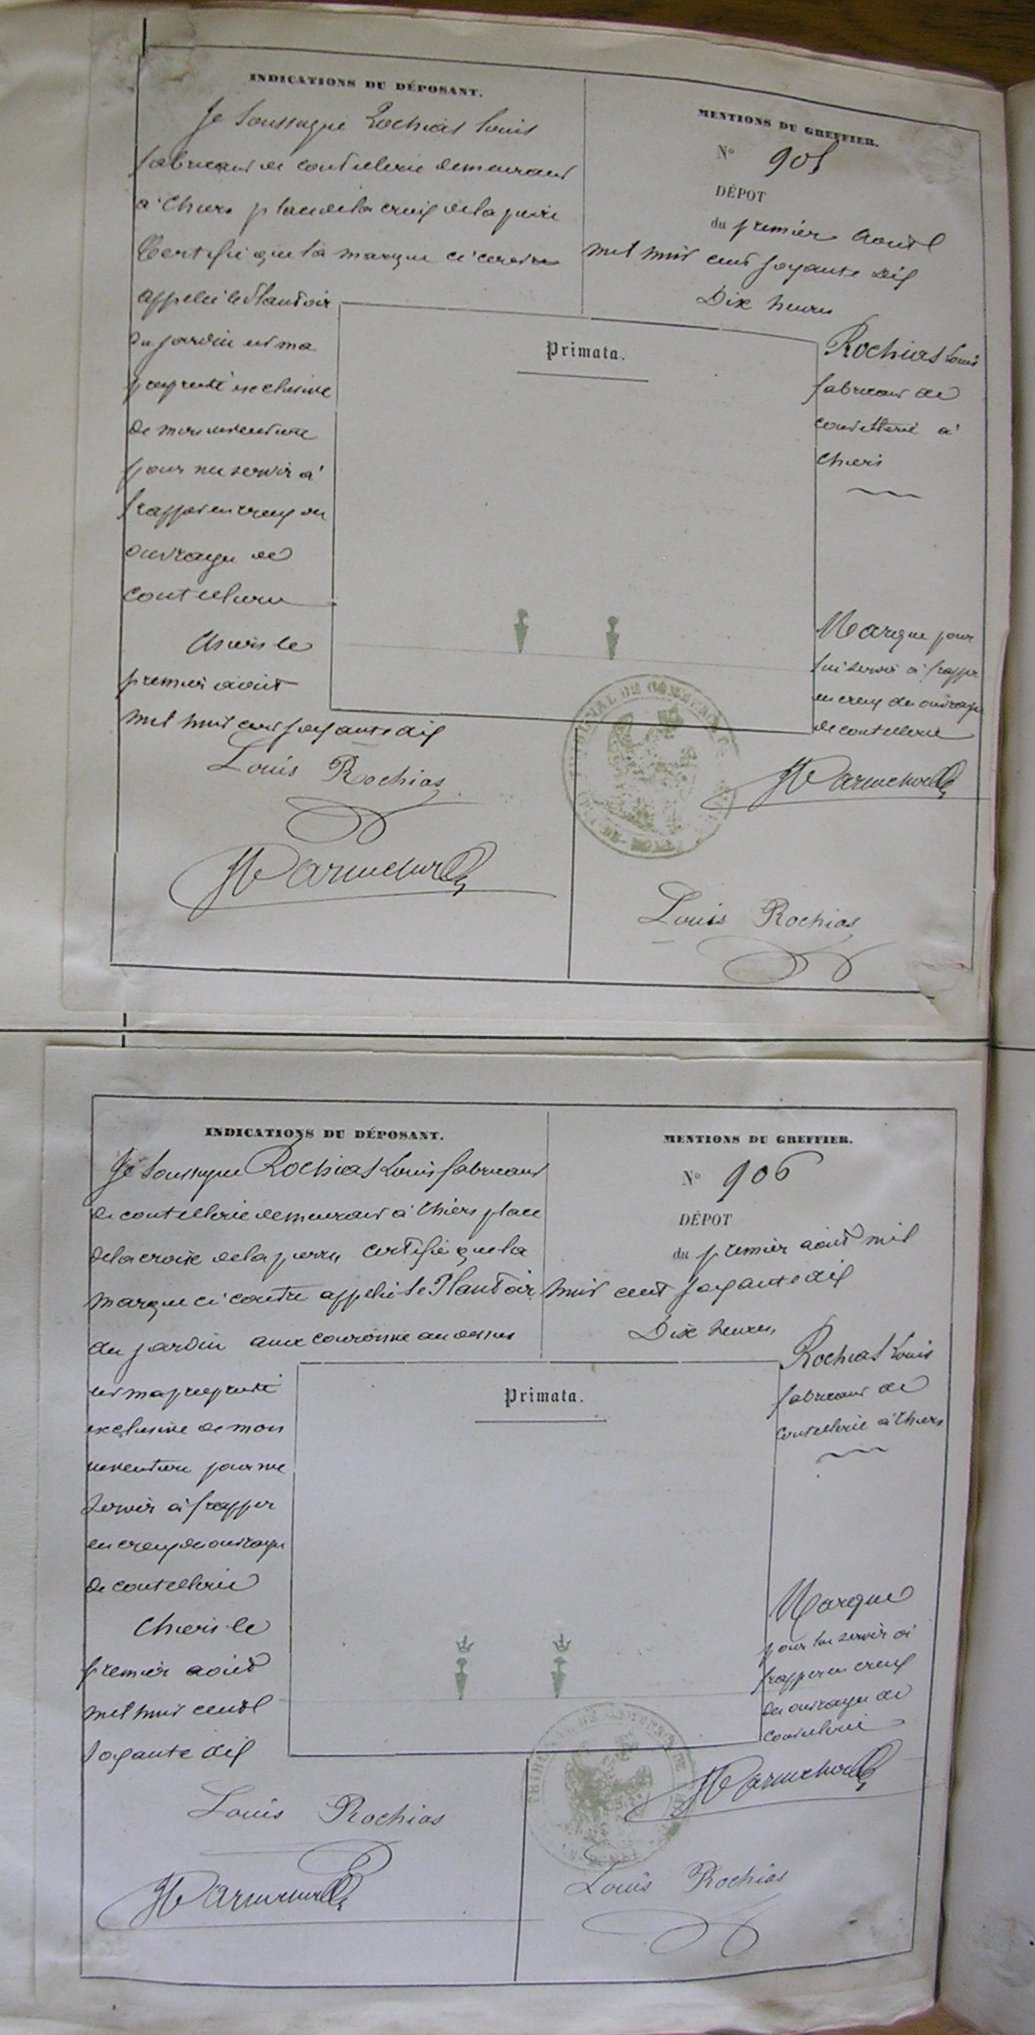 INDICATIONS DU DÉPOSANT.
Je soussigné Rochias Louis
fabricant de coutellerie demeurant
à Thiers place de la croix de la pierre
Certifie que la marque ci contre
appelée le Plantoir
du jardin est ma
propriété exclusive
de mon invention
pour me servir à
frapper en creux des
ouvrages de
coutellerie
Thiers le
premier août
mil huit cent soixante dix
Louis Rochias
MENTIONS DU GREFFIER.
N° 905
DÉPOT
du premier Août
mil huit cent soixante dix
Dix heures
Primata.
Rochias Louis
fabricant de
coutellerie à
Thiers
Marque pour
lui servir à frapper
en creux des ouvrages
de coutellerie
Louis Rochias
INDICATIONS DU DÉPOSANT.
Je soussigné Rochias Louis fabricant
de coutellerie demeurant à Thiers place
de la croix de la pierre certifie que la
marque ci contre appelée le Plantoir
du jardin avec couronne au dessus
est ma propriété
exclusive de mon
invention pour me
servir à frapper
en creux des ouvrages
de coutellerie
Thiers le
premier août
mil huit cent
soixante dix
Louis Rochias
MENTIONS DU GREFFIER.
N° 906
DÉPOT
du premier août mil
huit cent soixante dix
Dix heures
Primata.
Rochias Louis
fabricant de
coutellerie à Thiers
Marque
pour lui servir à
frapper en creux
des ouvrages de
coutellerie
TRIBUNAL DE COMMERCE DE
Louis Rochias